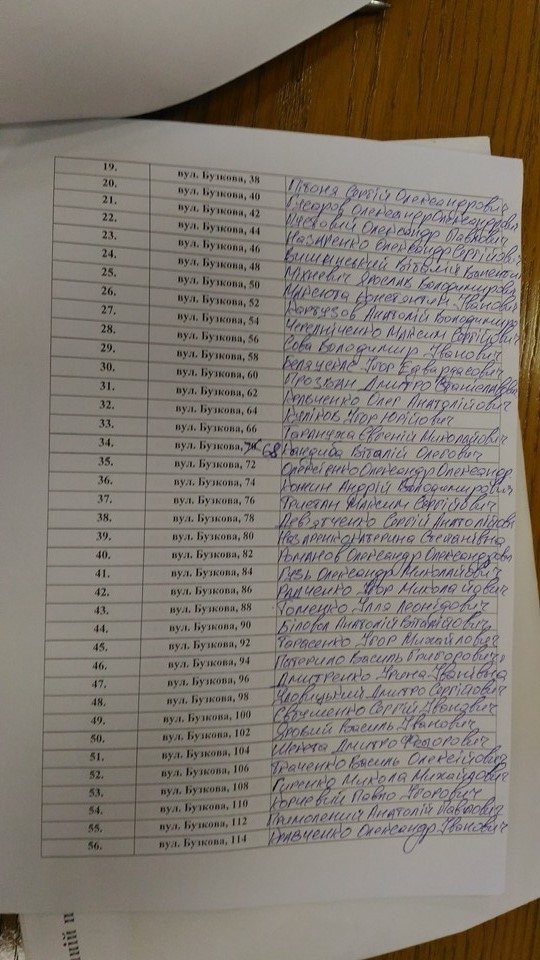 19. вул. Бузкова, 38 Сергій Олександрович
20. вул. Бузкова, 40 Гусаров Олександр Олександрович
21. вул. Бузкова, 42 Шестовий Олександр Павлович
22. вул. Бузкова, 44 Назаренко Олександр Сергійович
23. вул. Бузкова, 46 Вишинський Віталій
24. вул. Бузкова, 48 Міхневич Ярослав Володимирович
25. вул. Бузкова, 50 Максюта Констянтин Іванович
26. вул. Бузкова, 52 Картузов Анатолій Володимир
27. вул. Бузкова, 54 Чередніченко Максим Сергійович
28. вул. Бузкова, 56 Сова Володимир Іванович
29. вул. Бузкова, 58 Ігор Едвардасович
30. вул. Бузкова, 60 Дмитро
31. вул. Бузкова, 62 Кравченко Олег Анатолійович
32. вул. Бузкова, 64 Куліков Ігор Юрійович
33. вул. Бузкова, 66 Євгеній Миколайович
34. вул. Бузкова, 68 Кандиба Віталій Олегович
35. вул. Бузкова, 72 Олексієнко Олександр Олександр
36. вул. Бузкова, 74 Андрій Володимирович
37. вул. Бузкова, 76 Тристан Максим Сергійович
38. вул. Бузкова, 78 Дев'ятченко Сергій Анатолійович
39. вул. Бузкова, 80 Назаренко Катерина Степанівна
40. вул. Бузкова, 82 Романов Олександр Олександрович
41. вул. Бузкова, 84 Гузь Олександр Миколайович
42. вул. Бузкова, 86 Радченко Ігор Миколайович
43. вул. Бузкова, 88 Томенко Ілля Леонідович
44. вул. Бузкова, 90 Біловол Анатолій Віталійович
45. вул. Бузкова, 92 Тарасенко Ігор Михайлович
46. вул. Бузкова, 94 Потерило Василь Григорович
47. вул. Бузкова, 96 Дмитренко Ірина Іванівна
48. вул. Бузкова, 98 Дмитро Сергійович
49. вул. Бузкова, 100 Євтушенко Сергій Іванович
50. вул. Бузкова, 102 Яровий Василь Іванович
51. вул. Бузкова, 104 Шекета Дмитро Федорович
52. вул. Бузкова, 106 Ткаченко Василь Олексійович
53. вул. Бузкова, 108 Гиренко Микола Михайлович
54. вул. Бузкова, 110 Корчевий Павло Ігорович
55. вул. Бузкова, 112 Примолений Анатолій Павлович
56. вул. Бузкова, 114 Кравченко Олександр Іванович